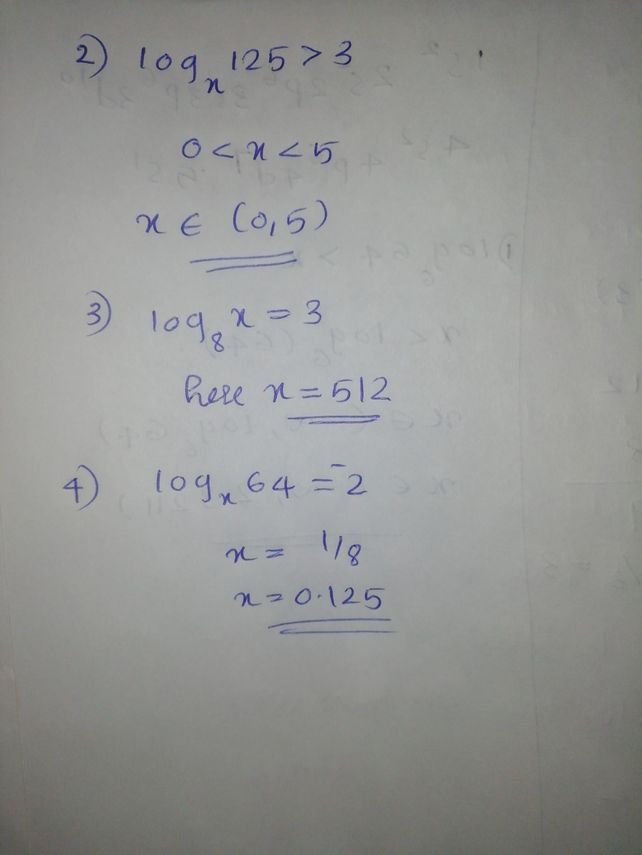 2) logₓ 125 > 3
0 < x < 5
x ∈ (0,5)
3) log₈ x = 3
here x = 512
4) logₓ 64 = -2
x = 1/8
x = 0.125